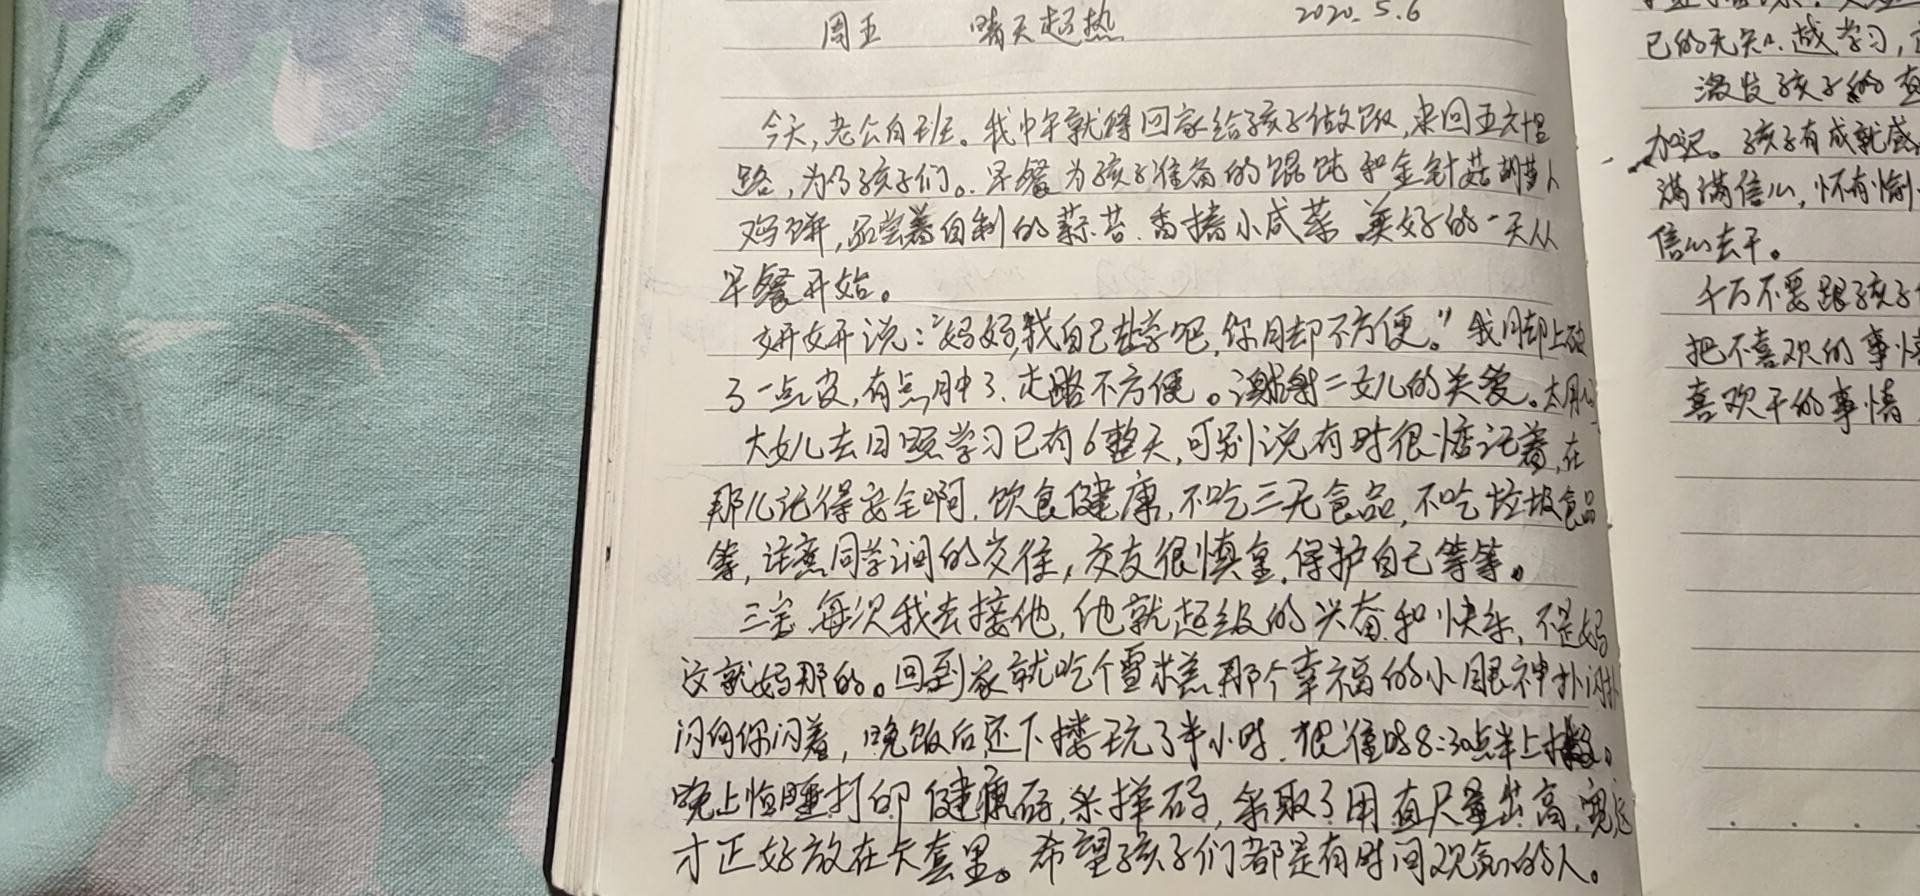 周五 晴天超热 2020.5.6
今天,老公白班。我中午就得回家给孩子做饭,来回五六十里
路,为了孩子们。早餐为孩子准备的馄饨和金针菇胡萝卜
鸡饼,品尝着自制的蒜苔、香椿小咸菜,美好的一天从
早餐开始。
妍妍说:“妈妈,我自己去学吧,你月却不方便。”我月却上破
了一点皮,有点肿了,走路不方便。谢谢二女儿的关爱。太
大女儿去日照学习已有6整天,可别说有时很惦记着,在
那儿记得安全啊,饮食健康,不吃三无食品,不吃垃圾食品
等,注意同学间的交往,交友很慎重,保护自己等等。
三宝每次我去接他,他就超级的兴奋和快乐,不是妈
这就妈那的。回到家就吃个雪米羔,那个幸福的小眼神扑闪扑
闪向你闪着,晚饭后还下楼玩了半小时,很准时8:30点半上楼。
晚上临睡打印健康码,采样码,采取了用直尺量出高,宽
才正好放在卡套里。希望孩子们都是有时间观念的人。
己的无知.越学习,
激发孩子的
加呢。孩子有成就感
满满信心,怀有
信心去干。
千万不要跟孩子
把不喜欢的事情
喜欢干的事情